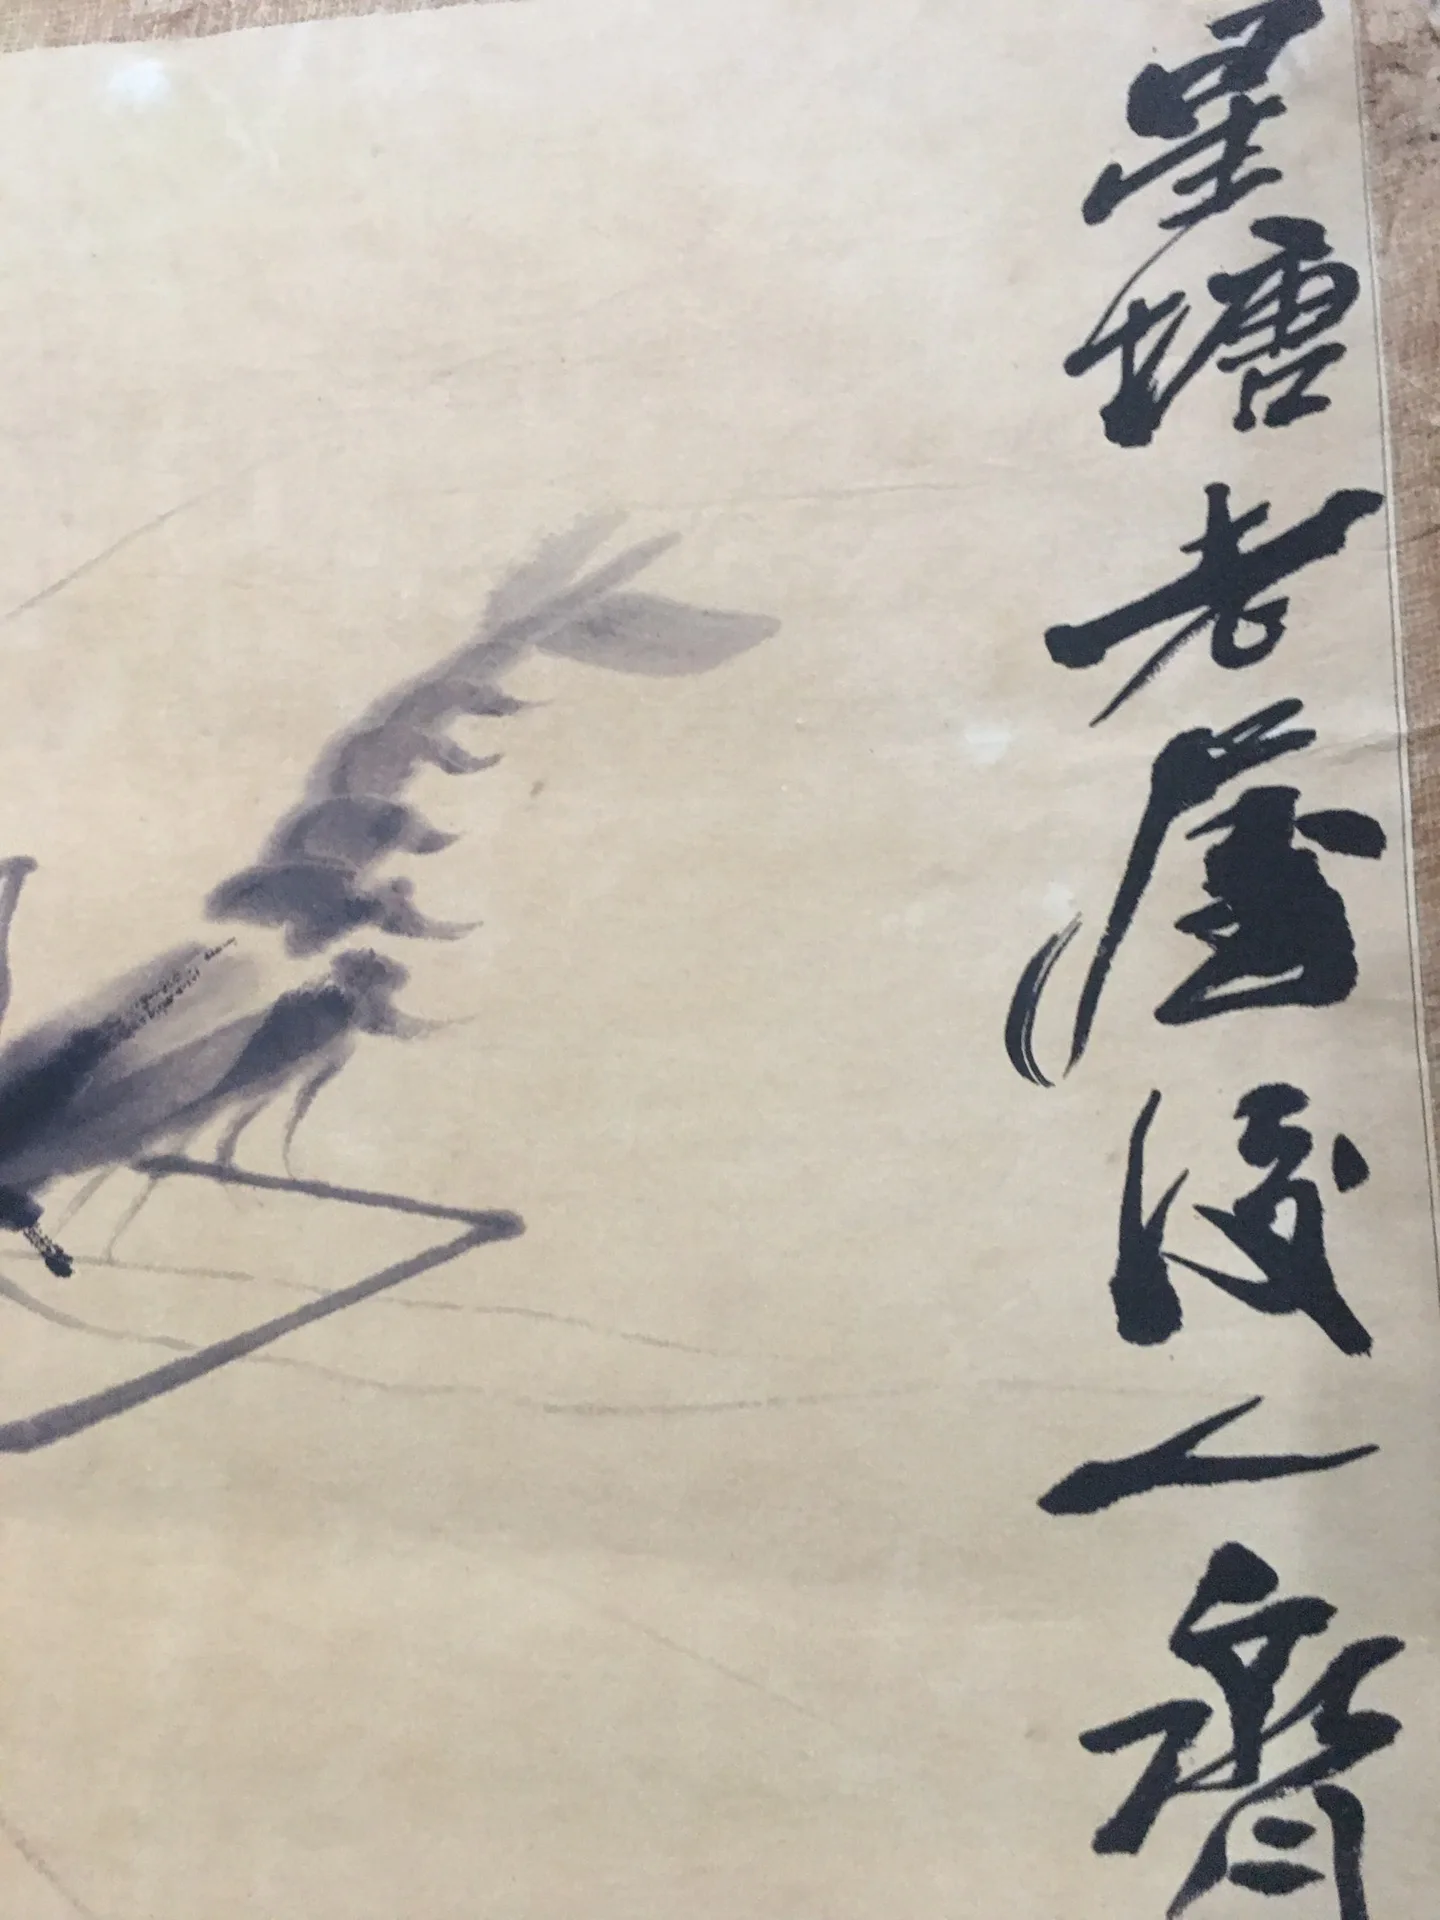 星塘老屋後人齊